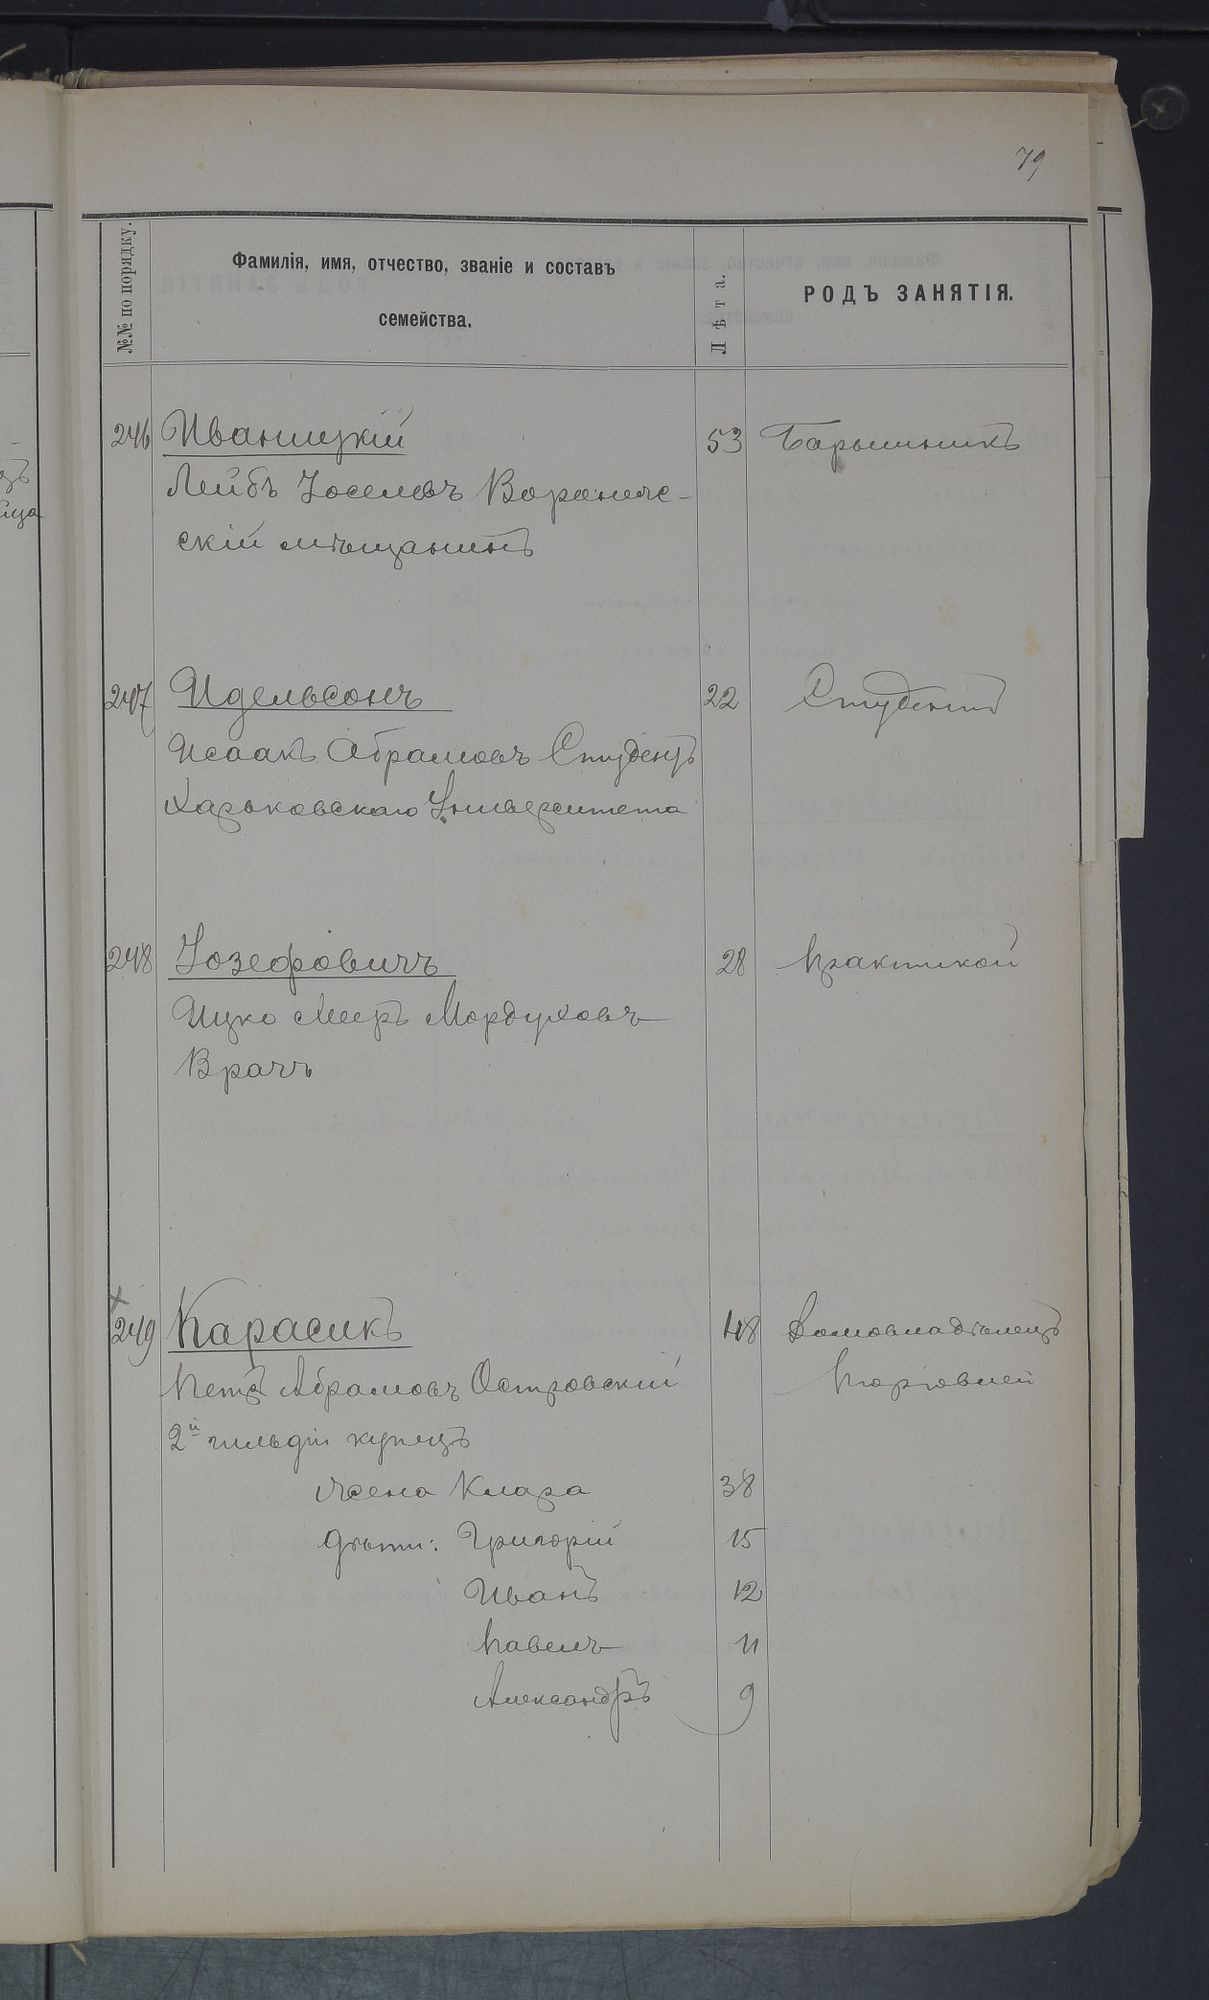 79
№№ по порядку.
Фамилія, имя, отчество, званіе и составъ
семейства.
Лѣта.
РОДЪ ЗАНЯТІЯ.
246 Иваницкій 53 Барышникъ
Лейбъ Іоселевъ Воронеж-
скій мѣщанинъ
247 Идельсонъ 22 Студентъ
Исаакъ Абрамовъ Студентъ
Харьковскаго Университета
248 Іозефовичъ 28 Практикой
Ицко Мееръ Мордуховъ
Врачъ
249 Карасикъ 48 Домовладѣлецъ
Петръ Абрамовъ Островскій Торговлей
2й гильдіи купецъ
жена Клара 38
дѣти: Григорій 15
Иванъ 12
Павелъ 11
Александръ 9